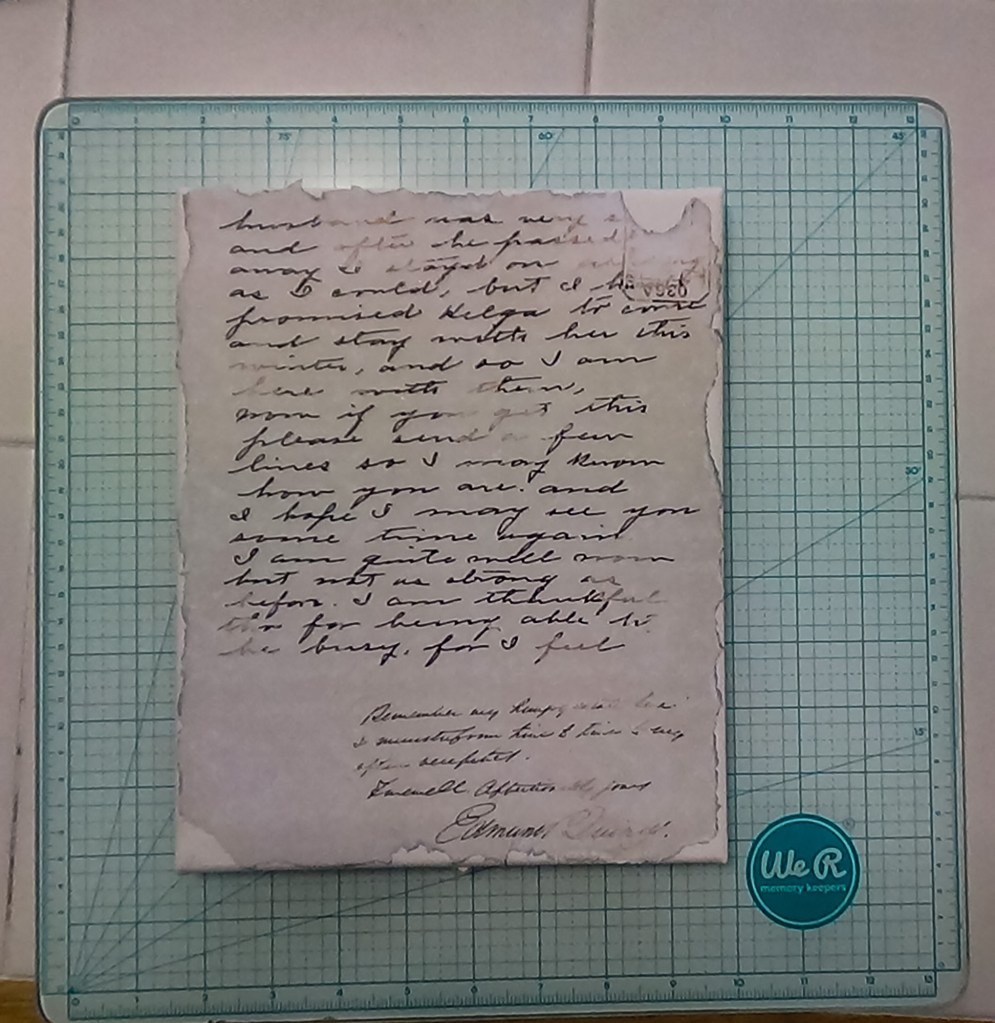 husband was very
and after he passed
away I stayed on
as I could, but I
promised Helga to come
and stay with her this
winter, and so I am
here with them,
now if you get this
please send a few
lines so I may know
how you are. and
I hope I may see you
some time again
I am quite well now
but not as strong as
before. I am thankful
tho for being able to
be busy, for I feel
Remember my
from time to time
often
Farewell. Affectionately yours
Edmund
We R
memory keepers
75°
60°
45°
30°
15°
0 1 2 3 4 5 6 7 8 9 10 11 12 13
0 1 2 3 4 5 6 7 8 9 10 11 12 13